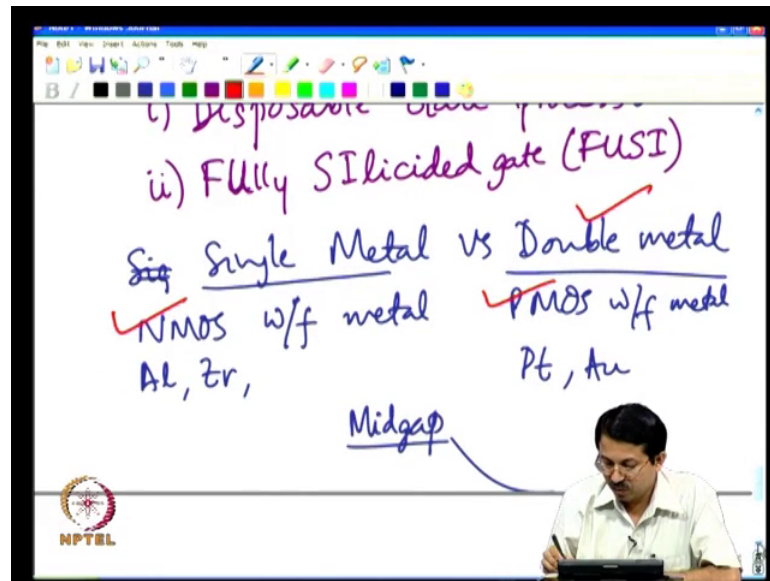 Note1 - Windows Journal
File Edit View Insert Actions Tools Help
B I
i) Disposable
ii) FUlly SIlicided gate (FUSI)
Sig Single Metal vs Double metal
NMOS w/f metal PMOS w/f metal
Al, Zr, Pt, Au
Midgap
NPTEL